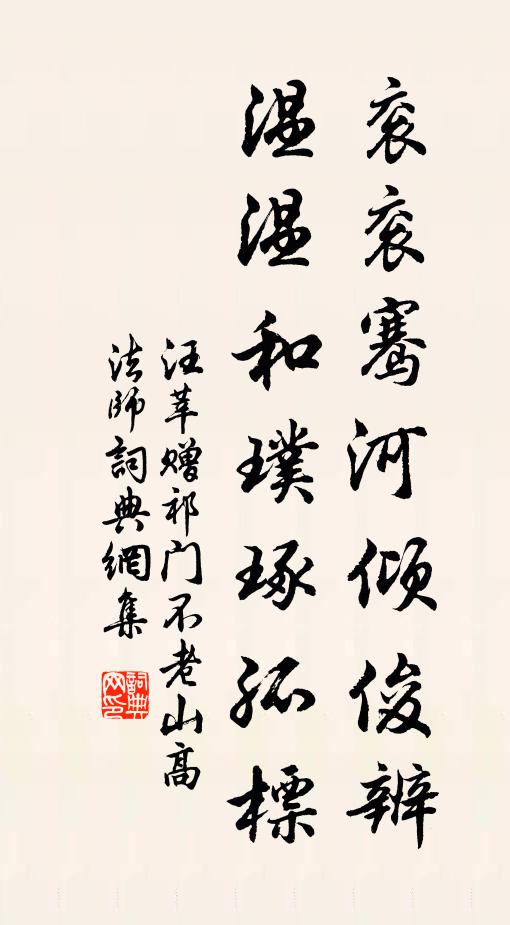 衮衮骞河倾俊辨
温温和璞琢孤標
汪莘赠祁门不老山高
法師詞典網集
詞典网印